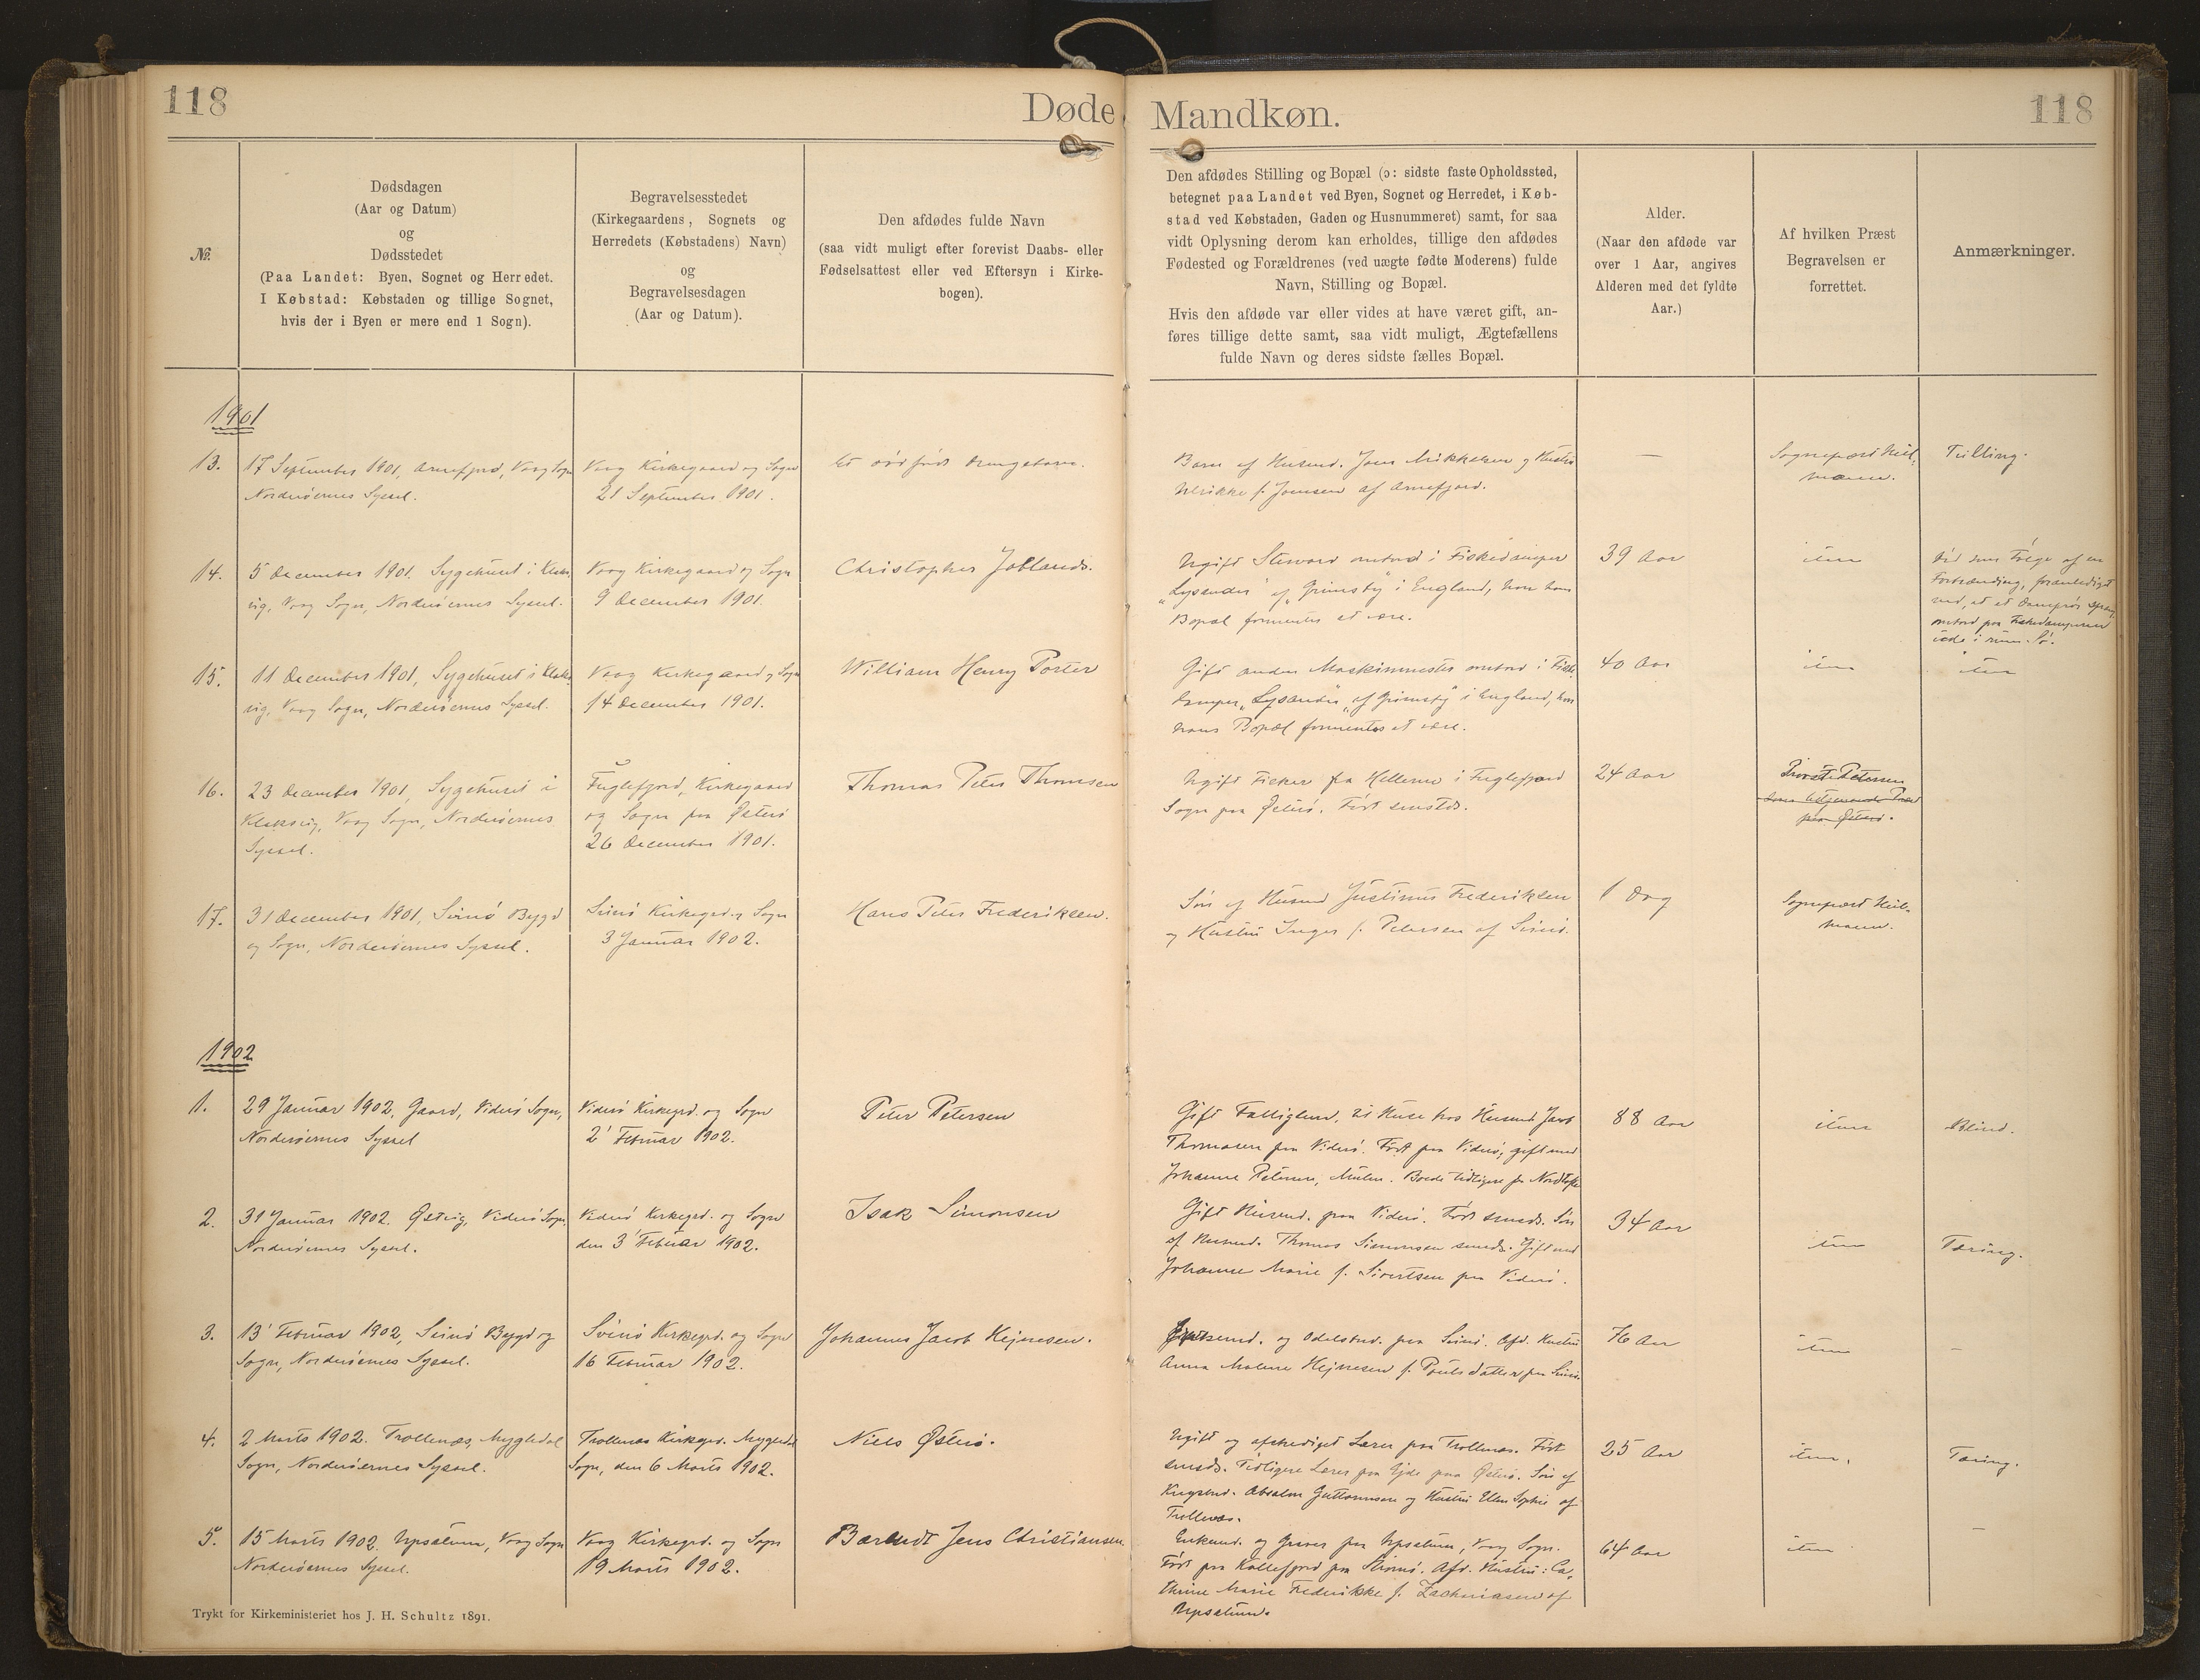 118
Døde
Mandkøn.
118
№.
Dødsdagen
(Aar og Datum)
og
Dødsstedet
(Paa Landet: Byen, Sognet og Herredet.
I Købstad: Købstaden og tillige Sognet,
hvis der i Byen er mere end 1 Sogn).
Begravelsesstedet
(Kirkegaardens, Sognets og
Herredets (Købstadens) Navn)
og
Begravelsesdagen
(Aar og Datum).
Den afdødes fulde Navn
(saa vidt muligt efter forevist Daabs- eller
Fødselsattest eller ved Eftersyn i Kirke-
bogen).
Den afdødes Stilling og Bopæl (ɔ: sidste faste Opholdssted,
betegnet paa Landet ved Byen, Sognet og Herredet, i Køb-
stad ved Købstaden, Gaden og Husnummeret) samt, for saa
vidt Oplysning derom kan erholdes, tillige den afdødes
Fødested og Forældrenes (ved uægte fødte Moderens) fulde
Navn, Stilling og Bopæl.
Hvis den afdøde var eller vides at have været gift, an-
føres tillige dette samt, saa vidt muligt, Ægtefællens
fulde Navn og deres sidste fælles Bopæl.
Alder.
(Naar den afdøde var
over 1 Aar, angives
Alderen med det fyldte
Aar.)
Af hvilken Præst
Begravelsen er
forrettet.
Anmærkninger.
1901
13.
17 September 1901, Arnefjord, Vaag Sogn
Norderøernes Syssel.
Vaag Kirkegaard og Sogn
21 September 1901.
Et dødfødt Drengebarn.
Barn af Husmd. Joen Mikkelsen og Hustru
Ulrikke f. Joensen af Arnefjord.
—
Sognepræst Heil-
mann.
Tvilling.
14.
5 December 1901. Sygehuset i Klak-
sig, Vaag Sogn, Norderøernes Syssel.
Vaag Kirkegaard og Sogn
9 December 1901.
Christopher Joblands.
Ugift Steward ombord i Fiskedamper
„Lysander" af „Grimsby" i England, hvor hans
Bopæl formentes at være.
39 Aar
item
Død som Følge af en
Forbrænding, foranlediget
ved, at et Damprør sprang
ombord paa Fiskedamperen
ude i rum Sø.
15.
11 December 1901, Sygehuset i Klak-
sig, Vaag Sogn, Norderøernes Syssel.
Vaag Kirkegaard og Sogn
14 December 1901.
William Henry Porter
Gift anden Maskinmester ombord i Fiske-
damper „Lysander" af „Grimsby" i England, hvor
hans Bopæl formentes at være.
40 Aar
item
item
16.
23 December 1901, Sygehuset i
Klaksvig, Vaag Sogn, Norderøernes
Syssel.
Fuglefjord, Kirkegaard
og Sogn paa Østerø
26 December 1901.
Thomas Peter Thomsen
Ugift Fisker fra Hellerne i Fuglefjord
Sogn paa Østerø. Født smstds.
24 Aar
Provst Petersen
paa Østerø.
17.
31 December 1901, Svinø Bygd
og Sogn, Norderøernes Syssel.
Svinø Kirkegrd. og Sogn
3 Januar 1902.
Hans Peter Frederiksen.
Søn af Husmd Justinus Frederiksen
og Hustru Inger f. Petersen af Svinø.
1 Dag
Sognepræst Heil-
mann.
1902
1.
29 Januar 1902, Gaard, Viderø Sogn,
Norderøernes Syssel
Viderø Kirkegrd. og Sogn
2' Februar 1902.
Peter Petersen
Gift Fattiglem, til Huse hos Husmd Jacob
Thomasen paa Viderø. Født paa Viderø, gift med
Johanne Petersen, Boede tidligere paa
88 Aar
item
Blind.
2.
31 Januar 1902. Østvig, Viderø Sogn,
Norderøernes Syssel.
Viderø Kirkegrd. og Sogn
den 3' Februar 1902.
Isak Simonsen
Gift Husmd. paa Viderø. Født smsds. Søn
af Husmd. Thomas Simonsen smsds. Gift med
Johanne Marie f. Sivertsen paa Viderø.
34 Aar
item
Tæring.
3.
13' Februar 1902, Svinø Bygd og
Sogn, Norderøernes Syssel.
Svinø Kirkegrd. og Sogn
16 Februar 1902.
Johannes Jacob Hejnesen.
og Odelsbd. paa Svinø. Afd. Hustru
Anna Malene Hejnesen f. Poulsdatter paa Svinø.
76 Aar
item
—
4.
2 Marts 1902. Trollenæs, Mygledal
Sogn, Norderøernes Syssel.
Trollenæs Kirkegrd. Mygledal
Sogn, den 6 Marts 1902.
Niels Østerø.
Ugift og afskediget Lærer paa Trollenæs. Født
smsds. Tidligere Lærer paa Ejde paa Østerø. Søn af
Kngsbnd. Absalon Guttormsen og Hustru Ellen Sophie af
Trollenæs.
25 Aar
item.
Tæring.
5.
15 Marts 1902. Upsalum, Vaag Sogn
Norderøernes Syssel.
Vaag Kirkegrd. og Sogn
19 Marts 1902.
Barendt Jens Christiansen
Enkemd. og Graver paa Upsalum, Vaag Sogn.
Født paa Kollefjord paa Strømø. Afd. Hustru: Ca-
thrine Marie Frederikke f. Zachariasen af
Upsalum.
64 Aar
item
—
Trykt for Kirkeministeriet hos J. H. Schultz 1891.